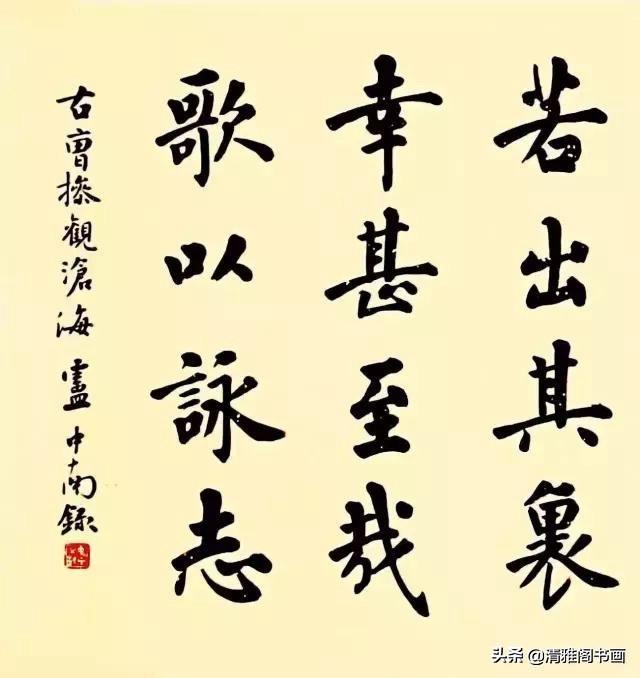 若出其裏
幸甚至哉
歌以詠志
右曹操觀滄海 盧中南錄
头条 @清雅阁书画